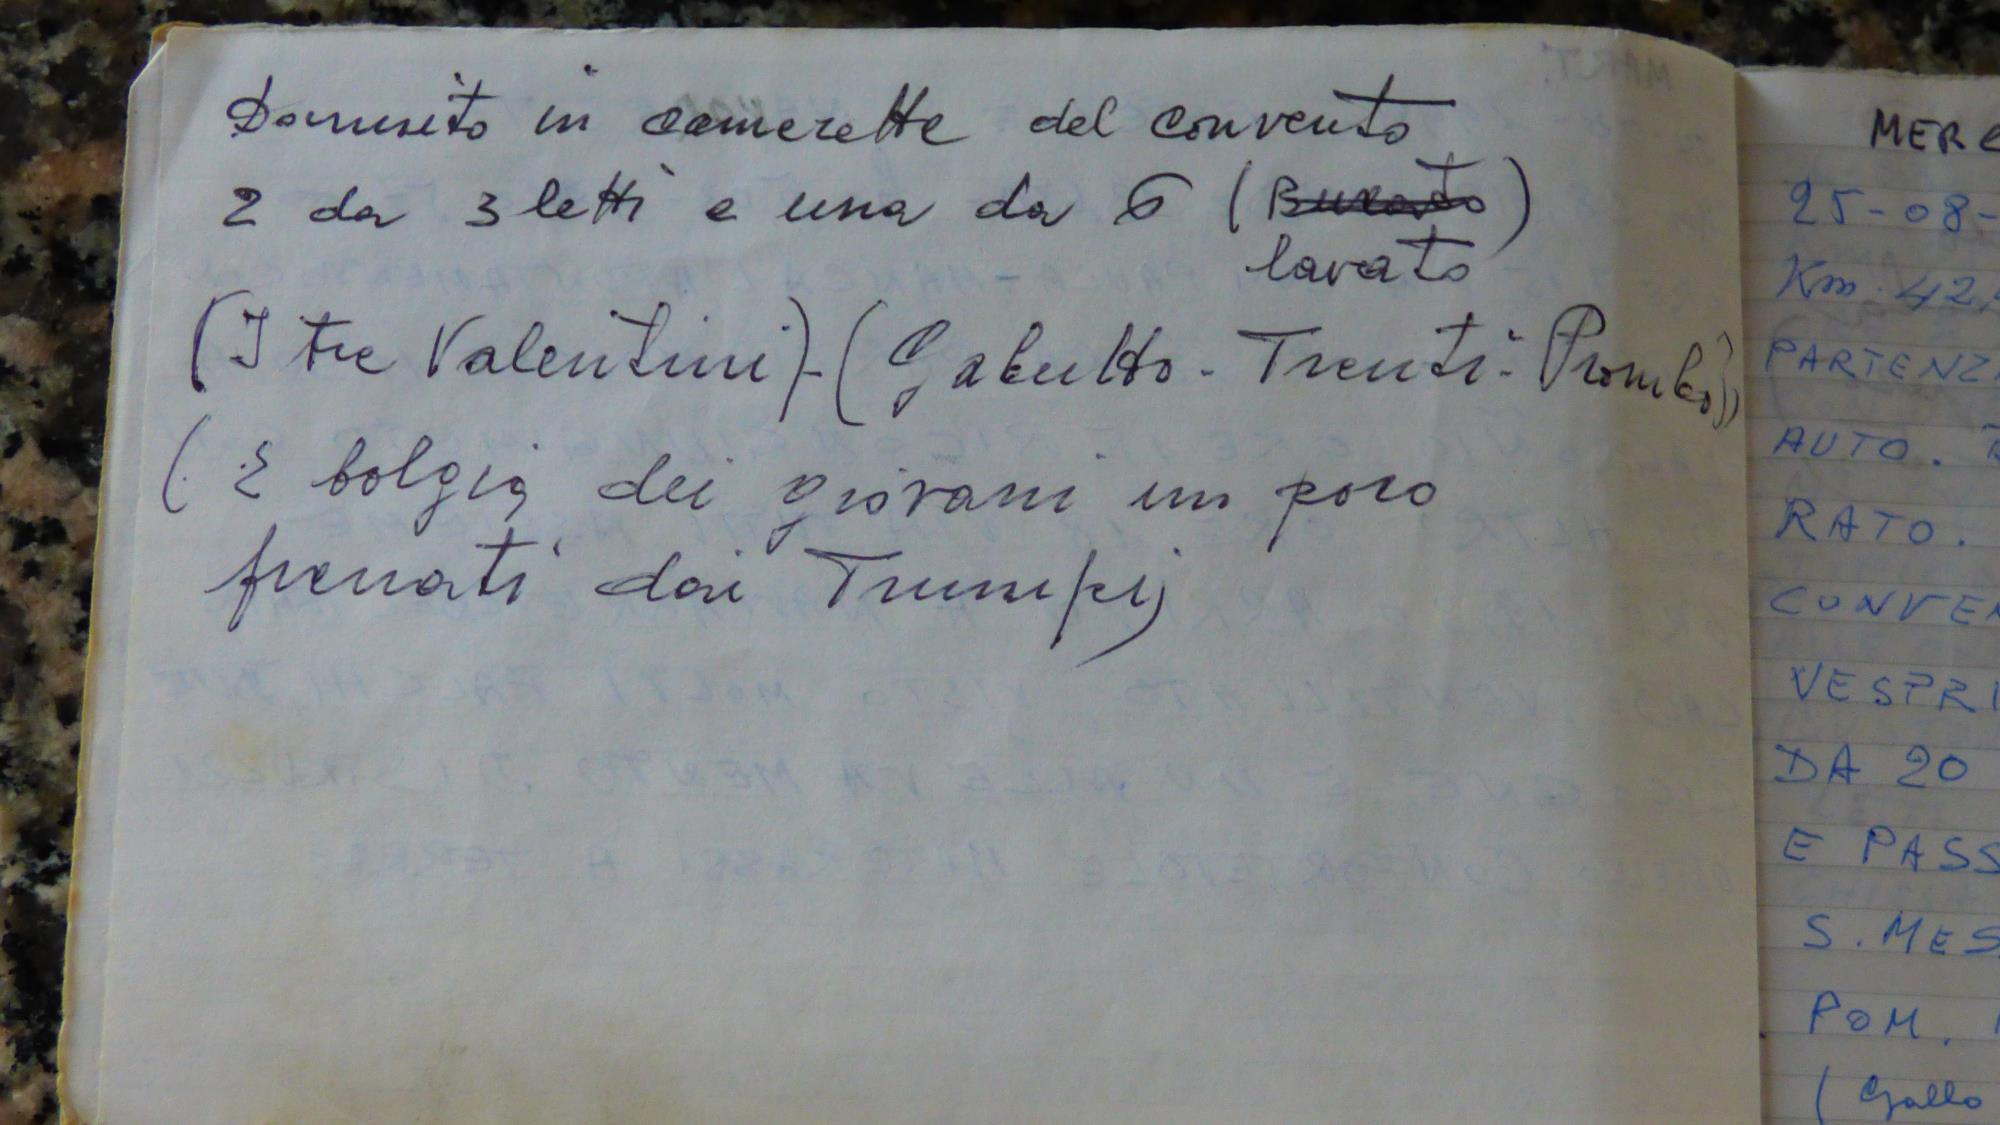 Dormito in camerette del convento
2 da 3 letti e una da 6 (Bucato)
lavato
(I tre Valentini)-(Gabutto - Trenti - Piombo)
( E bolgia dei giovani un poco
frenati dai
MART.
MERC
25-08-
Km. 42
PARTENZ
AUTO.
RATO.
CONVEN
VESPRI
DA 20
E PASS
S. MES
POM.
( Gallo